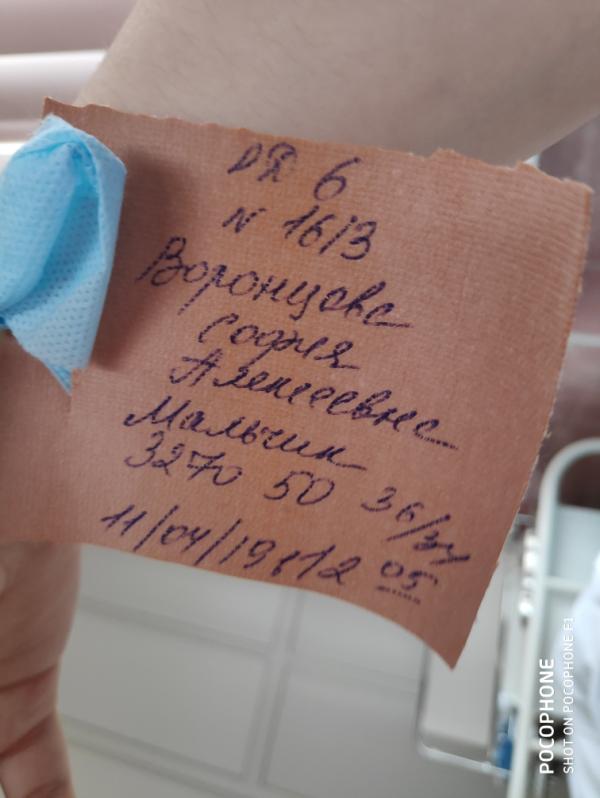 РД 6
N 1613
Воронцова
София
Алексеевна
Мальчик
3270 50 36/34
11/04/19г 12 05
POCOPHONE
SHOT ON POCOPHONE F1